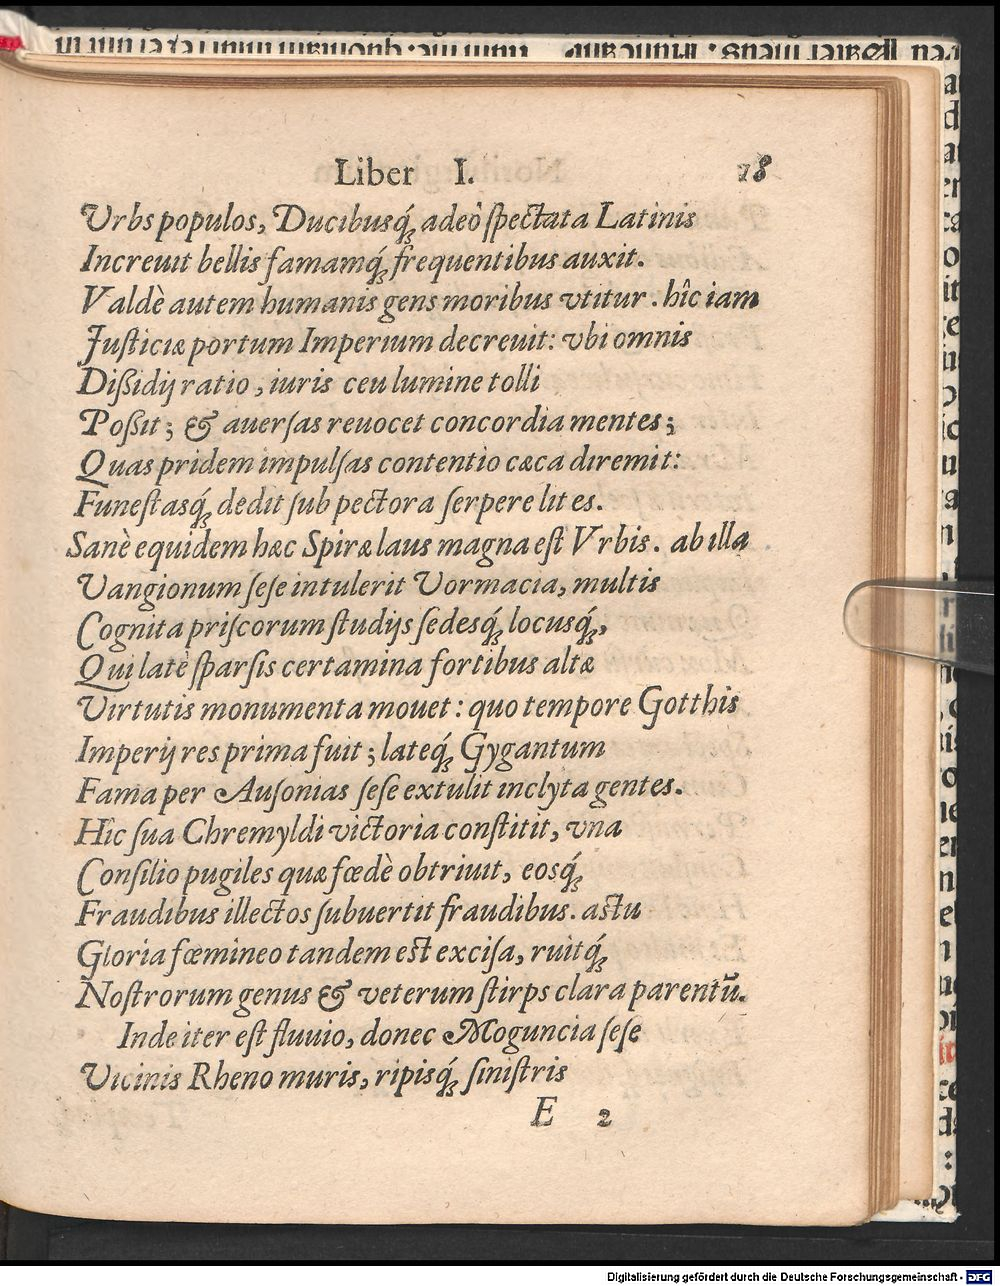 Liber I. 18
Vrbs populos, Ducibusq́; adeò ſpectata Latinis
Increuit bellis famamq́; frequentibus auxit.
Valdè autem humanis gens moribus vtitur. hîc iam
Juſticiæ portum Imperium decreuit: vbi omnis
Dißidij ratio, iuris ceu lumine tolli
Poßit; & auerſas reuocet concordia mentes;
Quas pridem impulſas contentio cæca diremit:
Funeſtasq́; dedit ſub pectora ſerpere lites.
Sanè equidem hæc Spiræ laus magna eſt Vrbis. ab illa
Uangionum ſeſe intulerit Uormacia, multis
Cognita priſcorum ſtudijs ſedesq́; locusq́;,
Qui latè ſparſis certamina fortibus altæ
Virtutis monumenta mouet: quo tempore Gotthis
Imperij res prima fuit; lateq́; Gygantum
Fama per Auſonias ſeſe extulit inclyta gentes.
Hîc ſua Chremyldi victoria conſtitit, vna
Conſilio pugiles quæ fœdè obtriuit, eosq́;
Fraudibus illectos ſubuertit fraudibus. aſtu
Gloria fœmineo tandem eſt exciſa, ruitq́;
Noſtrorum genus & veterum ſtirps clara parentũ.
Inde iter eſt fluuio, donec Moguncia ſeſe
Vicinis Rheno muris, ripisq́; ſiniſtris
E 2
Digitalisierung gefördert durch die Deutsche Forschungsgemeinschaft - DFG